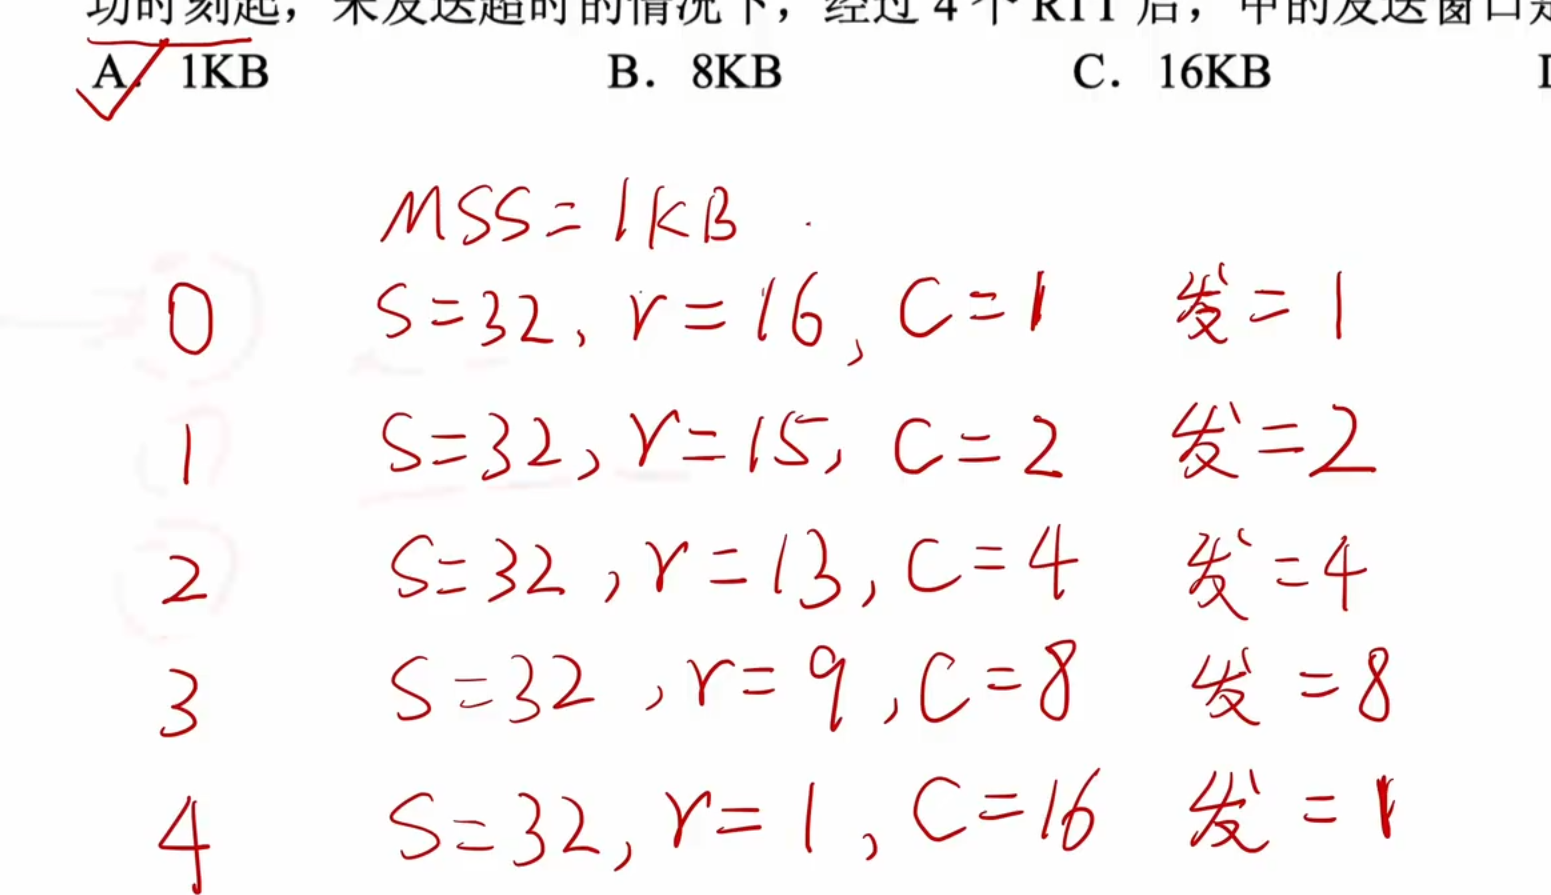 功时刻起，未发送超时的情况下，经过 4 个 RTT 后，甲的发送窗口是
A. 1KB B. 8KB C. 16KB
MSS=1KB
0 S=32, r=16, C=1 发=1
1 S=32, r=15, C=2 发=2
2 S=32, r=13, C=4 发=4
3 S=32, r=9, C=8 发=8
4 S=32, r=1, C=16 发=1